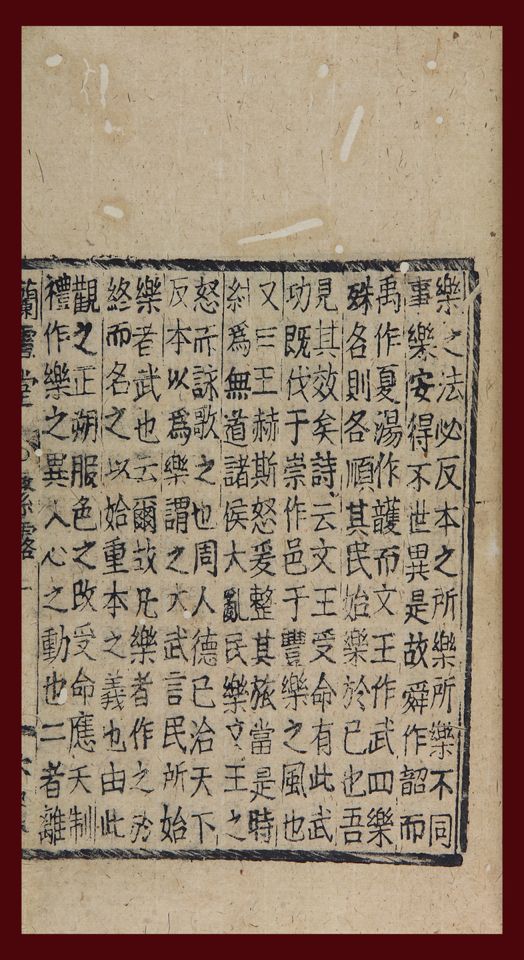 樂之法必反本之所樂所樂不同
事樂安得不世異是故舜作韶而
禹作夏湯作護而文王作武四樂
殊各則各順其民始樂於已也吾
見其效矣詩云文王受命有此武
功既伐于崇作邑于豐樂之風也
又曰王赫斯怒爰整其旅當是時
紂爲無道諸侯大亂民樂文王之
怒而詠歌之也周人德已洽天下
反本以爲樂謂之大武言民所始
樂者武也云爾故凡樂者作之於
終而名之以始重本之義也由此
觀之正朔服色之改受命應天制
禮作樂之異人心之動也二者離
蘭雪堂 繁露一